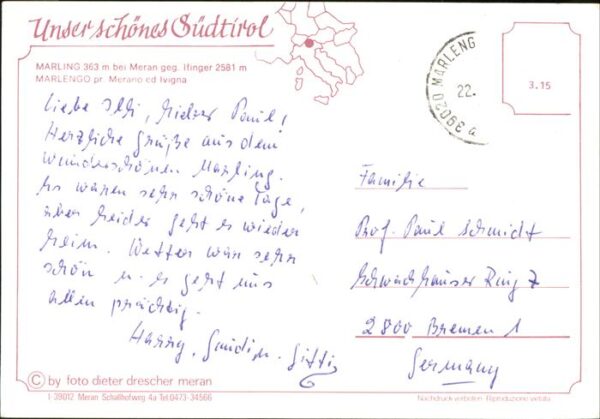 Unser schönes Südtirol
MARLING 363 m bei Meran geg. Ifinger 2581 m
MARLENGO pr. Merano ed Ivigna
Liebe Illi, lieber Paul!
Herzliche Grüße aus dem
wunderschönen Marling.
Es waren sehr schöne Tage,
aber leider geht es wieder
heim. Wetter war sehr
schön u. es geht uns
allen prächtig.
Harry,
© by foto dieter drescher meran
I-39012 Meran Schallhofweg 4a Tel.0473-34566
39020 MARLENG
22.
3.15
Familie
Prof. Paul Schmidt
Schwachhauser Ring 7
2800 Bremen 1
Germany
Nachdruck verboten Riproduzione vietata